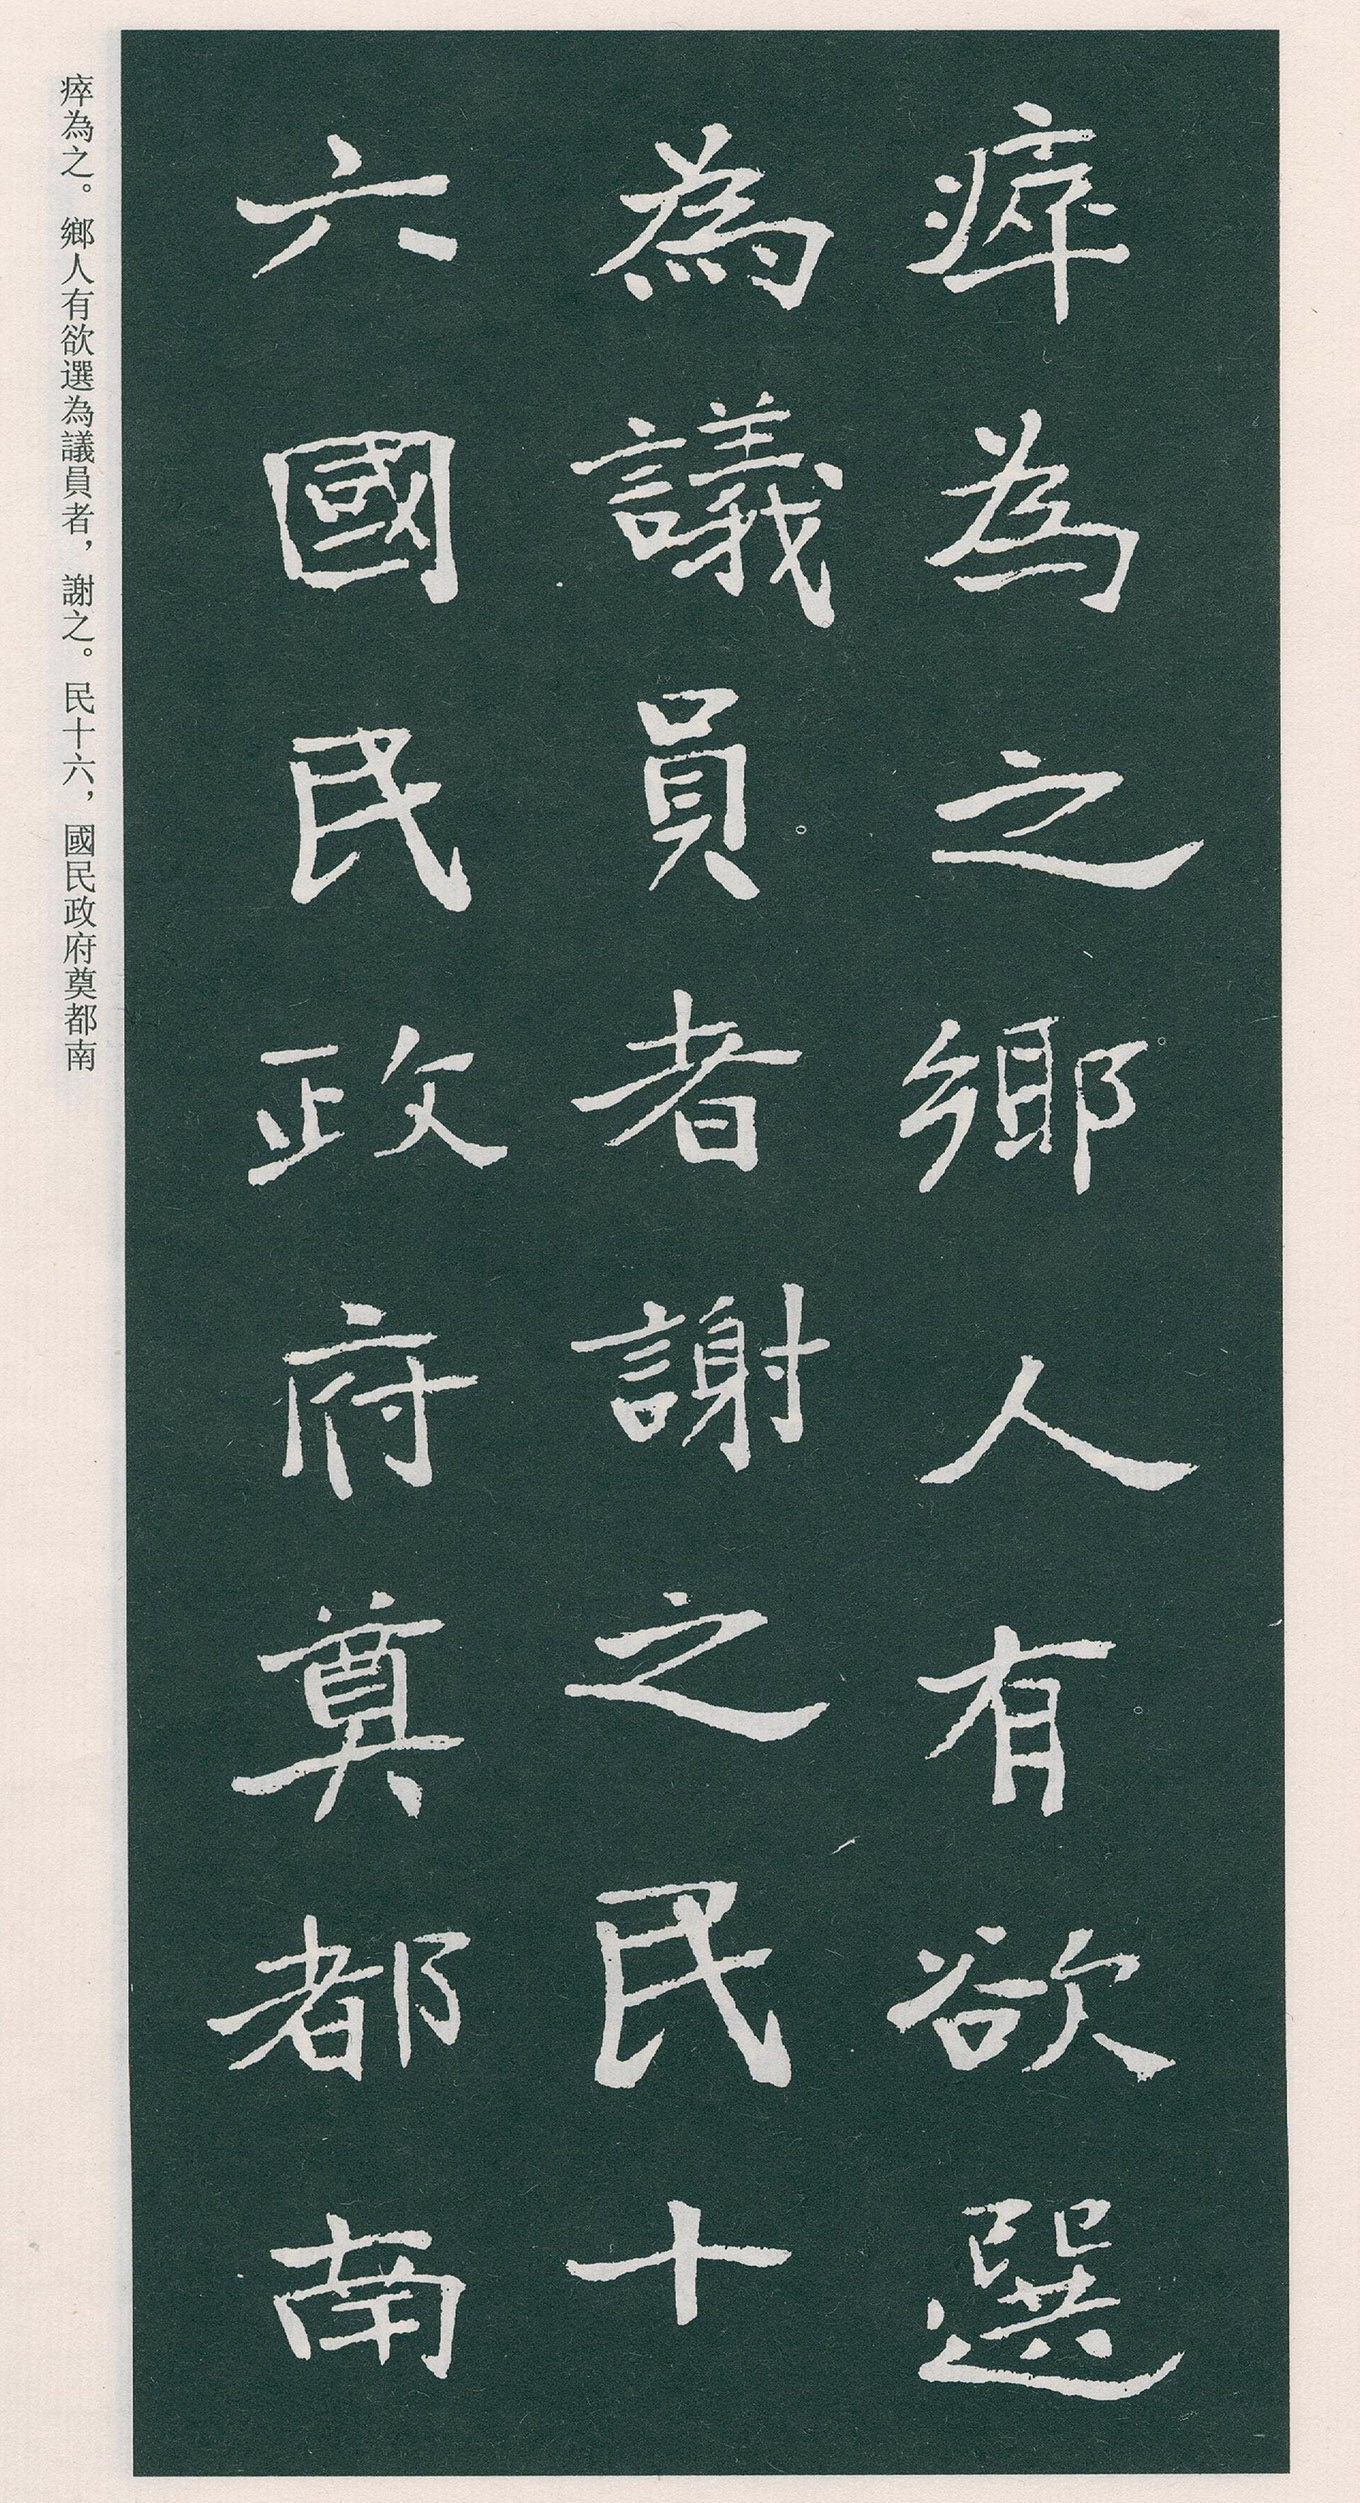 瘁為之鄉人有欲選
為議員者謝之民十
六國民政府奠都南
瘁為之。鄉人有欲選為議員者，謝之。民十六，國民政府奠都南